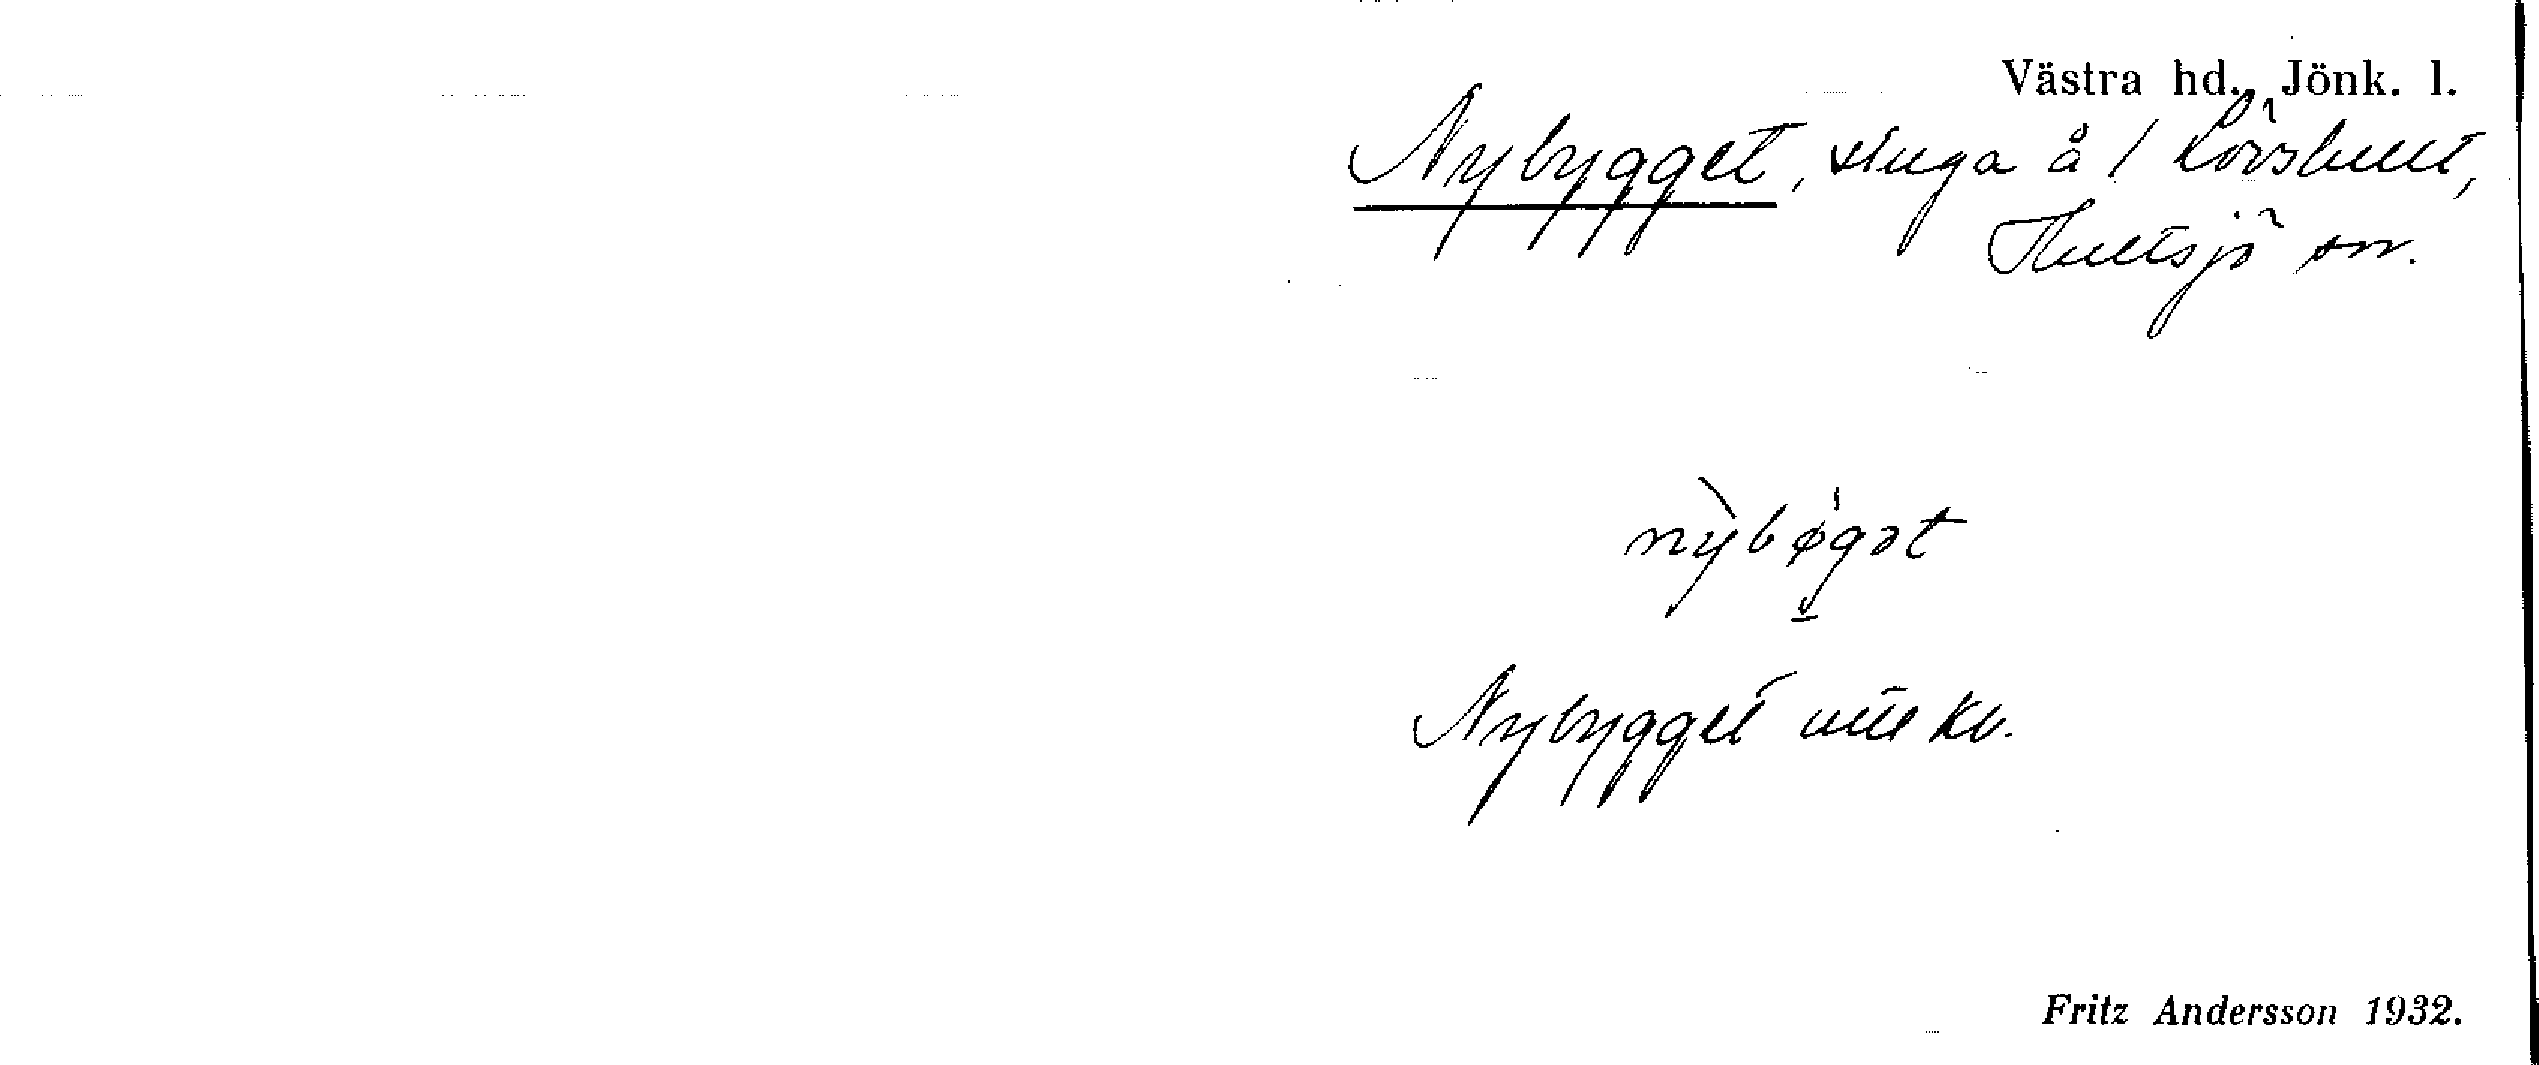 Västra hd., Jönk. l.
Nybygget, stuga å / Lövshult,
Hultsjö sn.
nỳbø̍gət
Nybygget utt kv.
Fritz Andersson 1932.